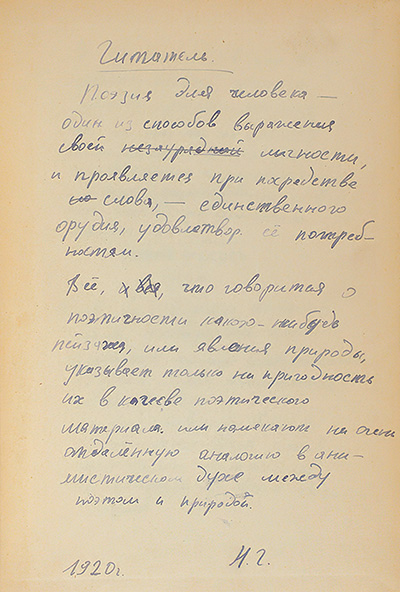 Читатель.
Поэзия для человека —
один из способов выражения
своей незаурядной личности,
и проявляется при посредстве
слова, — единственного
орудия, удовлетвор. её потреб-
ностям.
Всё, что говорится о
поэтичности какого-нибудь
пейзажа, или явления природы,
указывает только на пригодность
их в качестве поэтического
материала. или намекают на очень
отдалённую аналогию в ани-
мистическом духе между
поэтом и природой.
1920г. Н. Г.